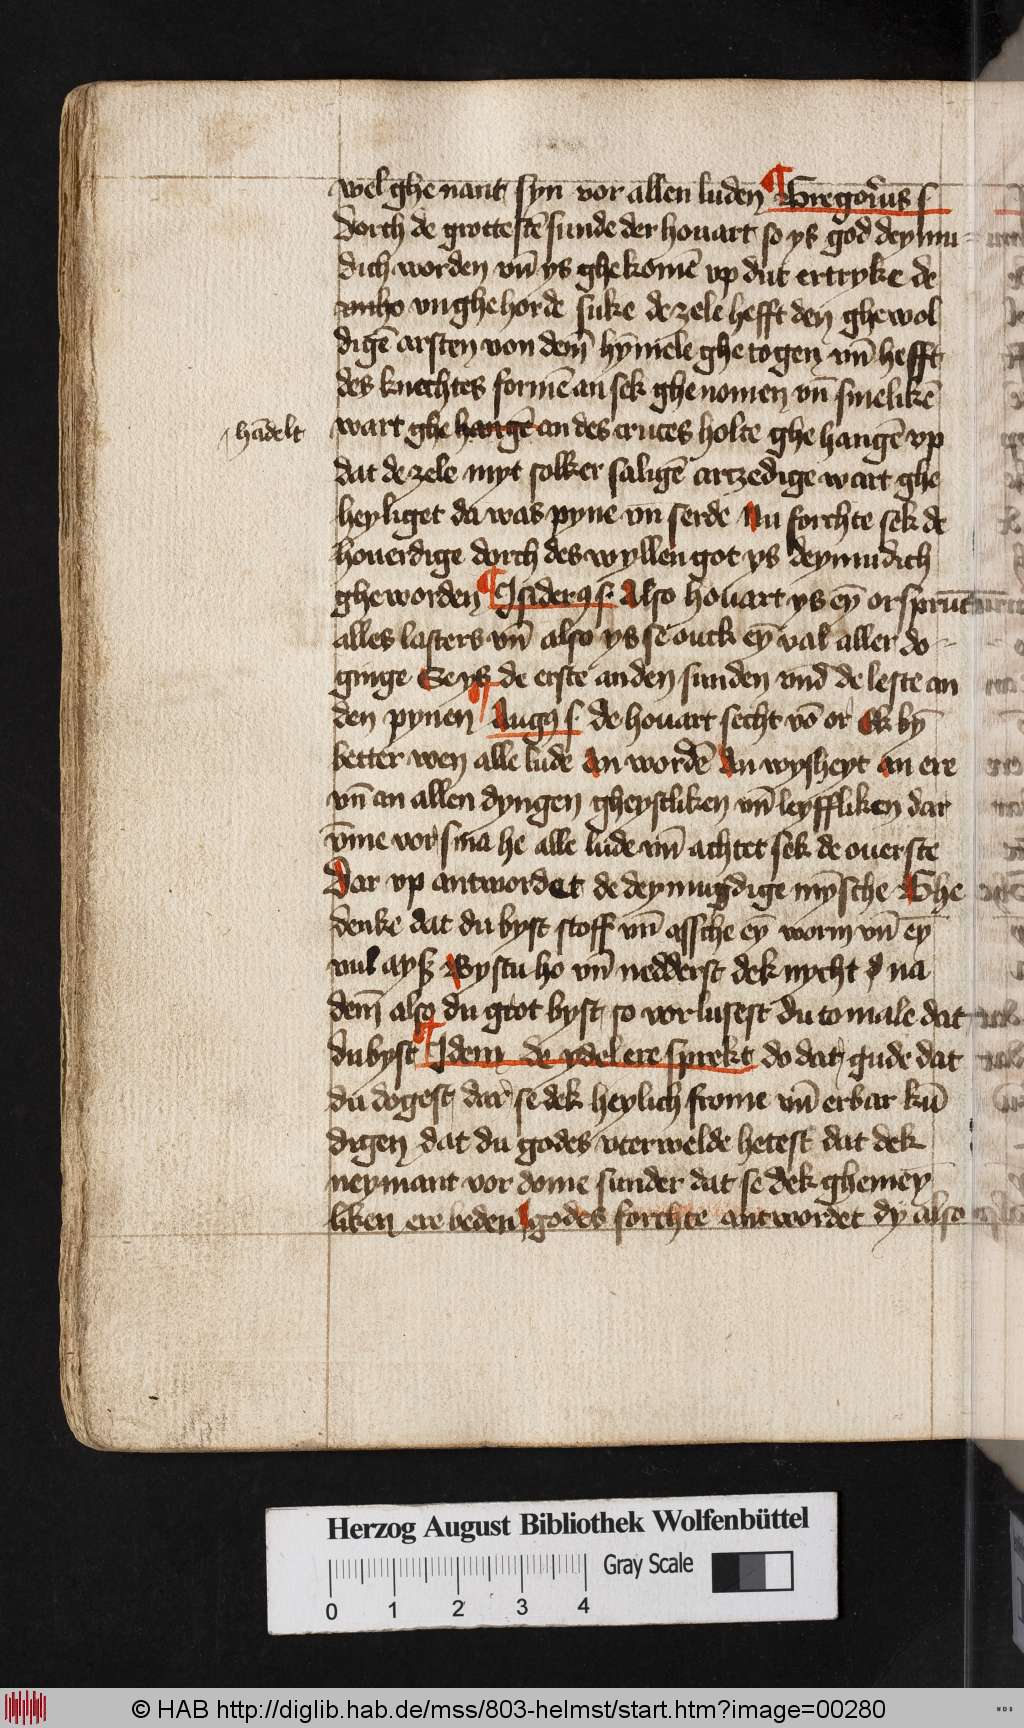 wel ghe nant syn vor allen luden ¶ Gregori9us s
Dorch de grottestē sunde der houart so ys god deymu-
dich worden vn̄ ys ghe komē vp dut ertryke de
vnho vnghehorde suke de zele hefft den ghewol
digē arsten von dem̄ hȳmele ghe togen vn̄ hefft
des knechtes formē an sek ghe nomen vn̄ smelikē
hādelt
wart ghe hangē an des cruces holte ghe hangē vp
dat de zele myt solker saligē artzedige wart ghe
heyliget da was pyne vn serde Nu forchte sek de
houerdige dorch des wyllen got ys deymudich
gheworden ¶ Isiderq s Also houart ys eȳ orsprūt
alles lasters vn̄ also ys se ouck eȳ val aller do-
ginge Se ys de erste an den sunden vnd̄ de leste an
den pynen ¶ Augq s de houart secht vō or Ek bȳ
better wen alle lude An wordē An wysheyt an ere
vn̄ an allen dyngen gheystliken vn̄ leyffliken dar
v̄me vor sma he alle lude vn̄ achtet sek de ouerste
Dar vp antwordet de deymugdige mȳsche Ghe
denke dat du byst stoff vn̄ assche eȳ worm vn̄ eȳ
vul ayß Bystu ho vn̄ nedderst dek nycht na
dem̄ also du grot byst so vorlusest du to male dat
du byst ¶ Idem de ydel ere sprekt do dat gude dat
du dogest dar se dek heylich frome vn̄ erbar kū
digen dat du godes vterwelde hetest dat dek
neymant vor dome sunder dat se dek ghemey
liken ere beden godes forchte antwordet dy also
Herzog August Bibliothek Wolfenbüttel
Gray Scale
0 1 2 3 4
© HAB http://diglib.hab.de/mss/803-helmst/start.htm?image=00280